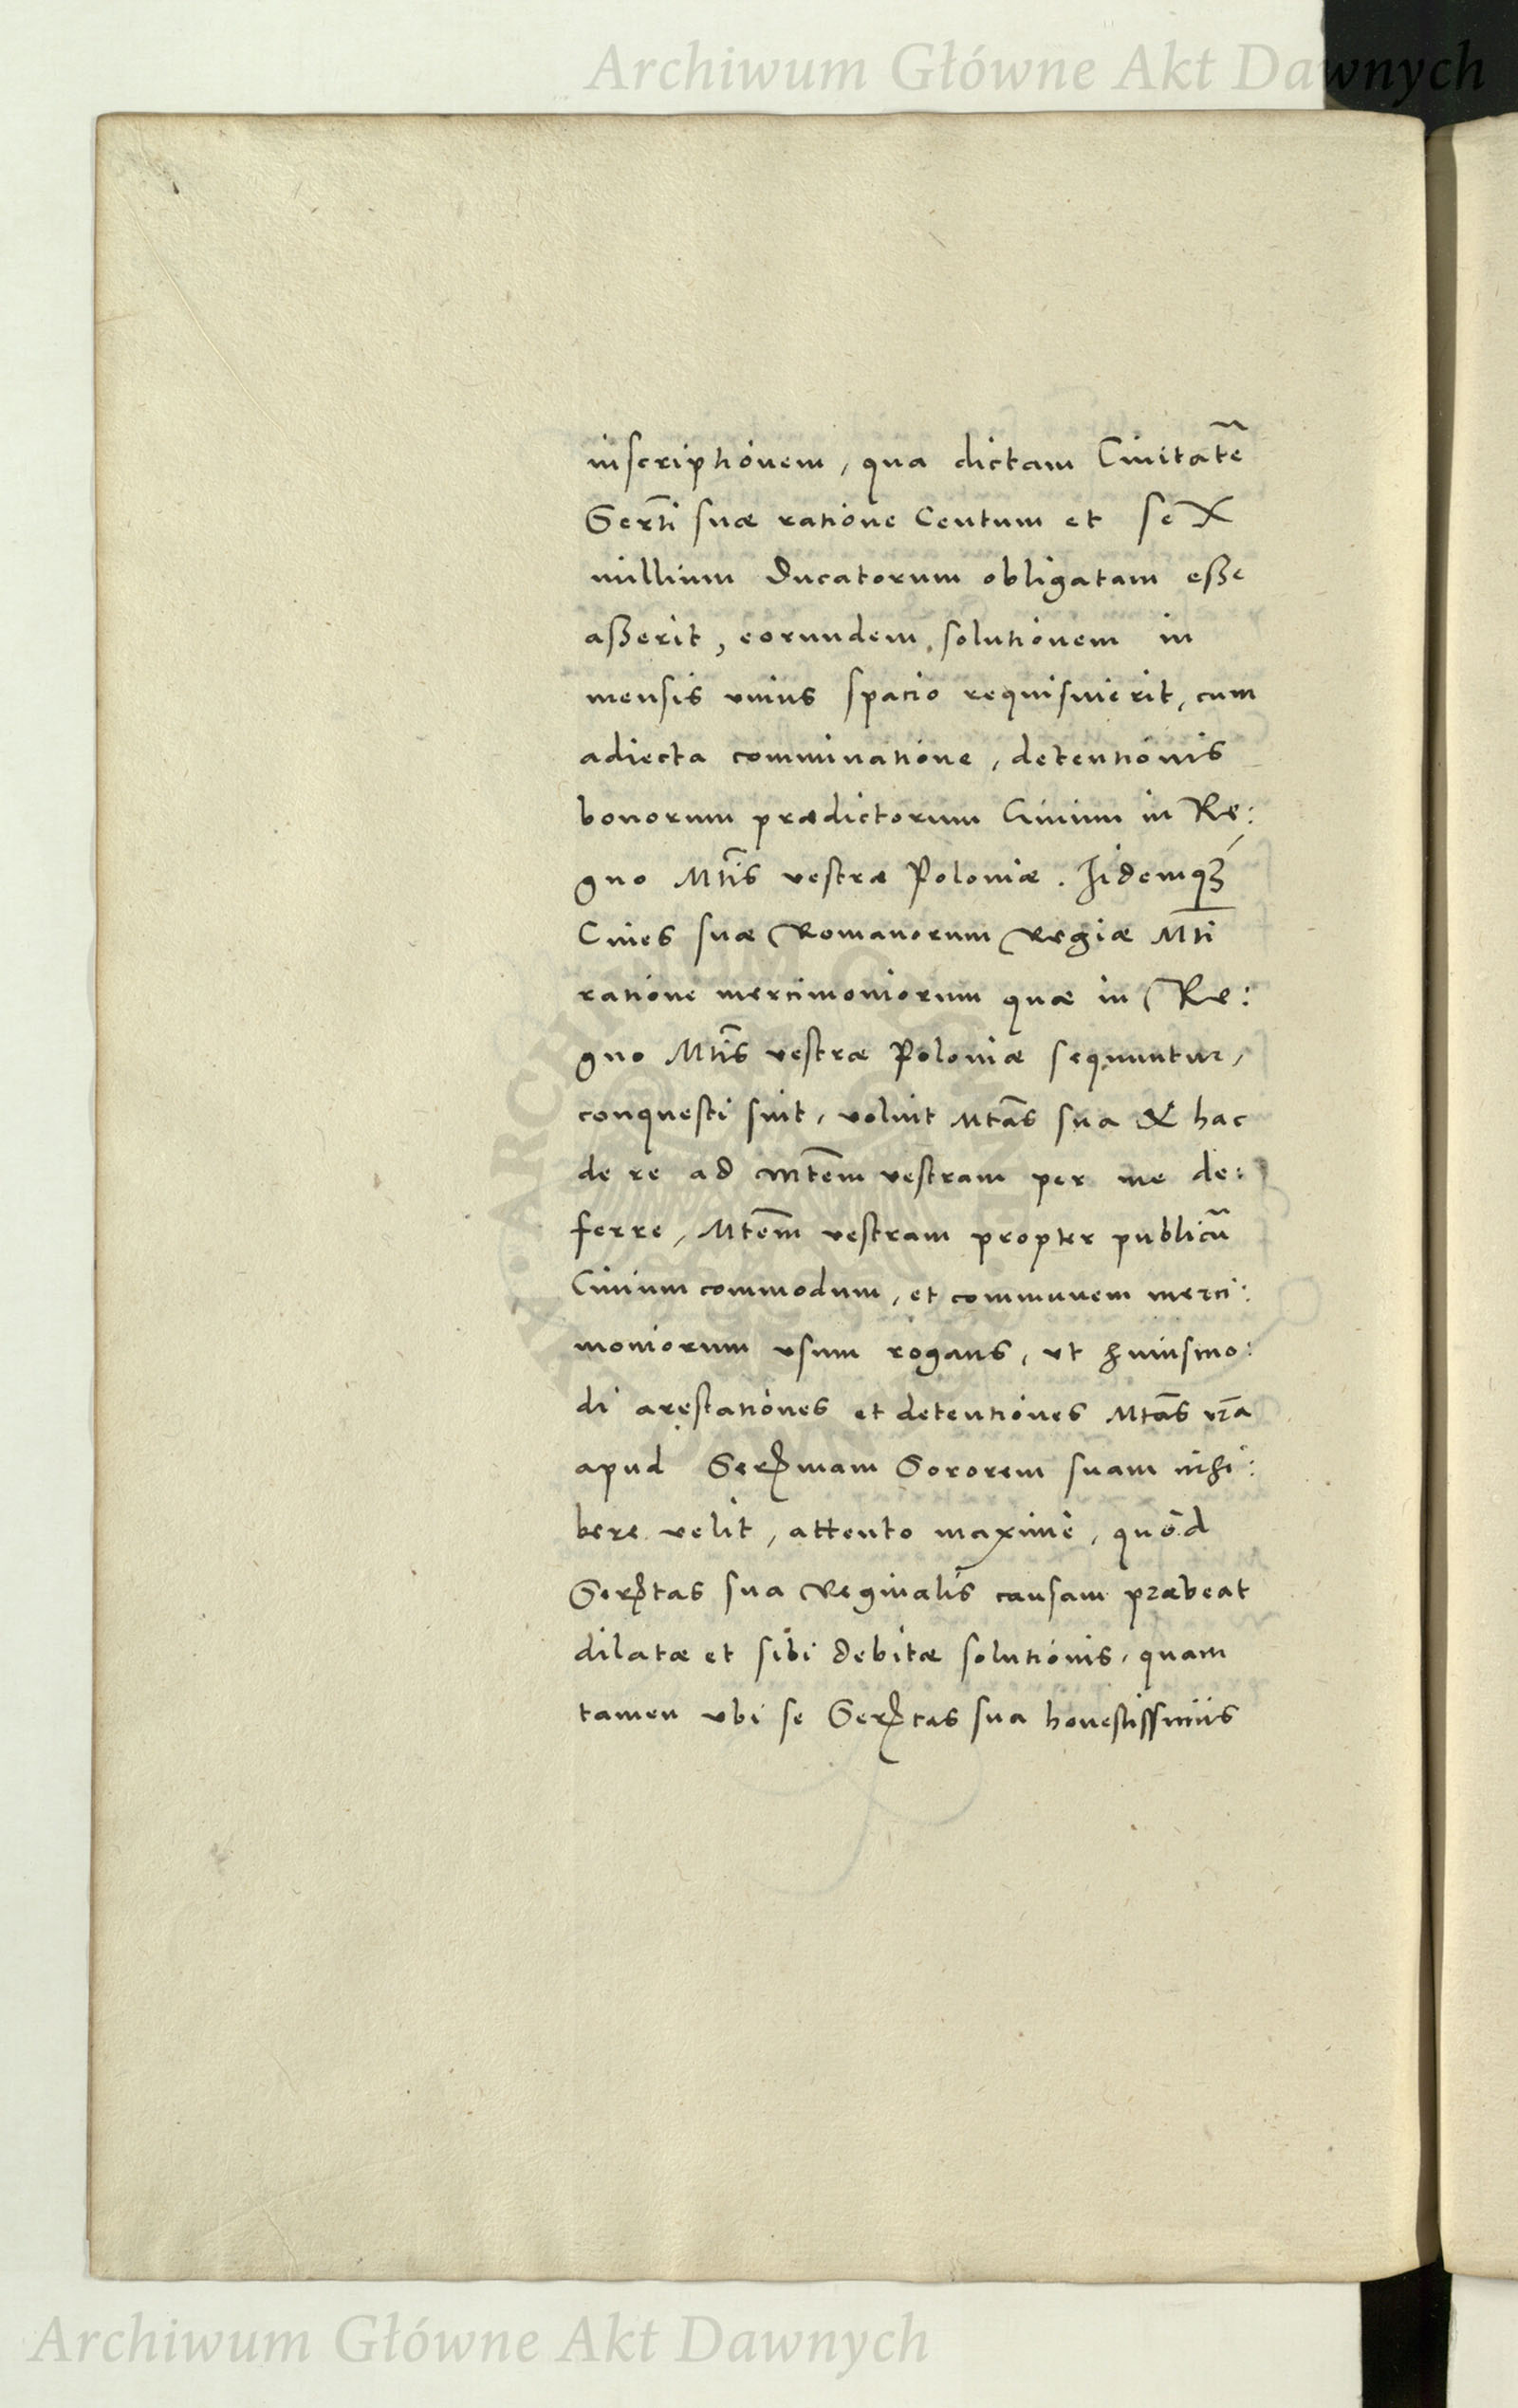 Archiwum Główne Akt Dawnych
inscriptionem, qua dictam Ciuitatē
Serti suæ ratione Centum et sex
millium Ducatorum obligatam eße
aßerit, eorundem solutionem in
mensis vnius spacio requisiuerit, cum
adiecta comminatione, detentionis
bonorum prædictorum Ciuium in Re:
gno Mtis vestræ Poloniæ. Iidemq3
Ciues suæ Romanorum Regiæ Mti
ratione mercimoniorum quæ in Re:
gno Mtis vestræ Poloniæ sequuntur,
conquesti sint, voluit Mtas sua & hac
de re ad Mtem vestram per me de:
ferre, Mtem vestram propter publicū
Ciuium commodum, et communem merci:
moniorum vsum rogans, vt huiusmo:
di arestationes et detentiones Mtas vra
apud Sermam Sororem suam inhi:
bere velit, attento maximè, quòd
Sertas sua Reginalis causam præbeat
dilatæ et sibi debitæ solutionis, quam
tamen vbi se Sertas sua honestissimis
Archiwum Główne Akt Dawnych